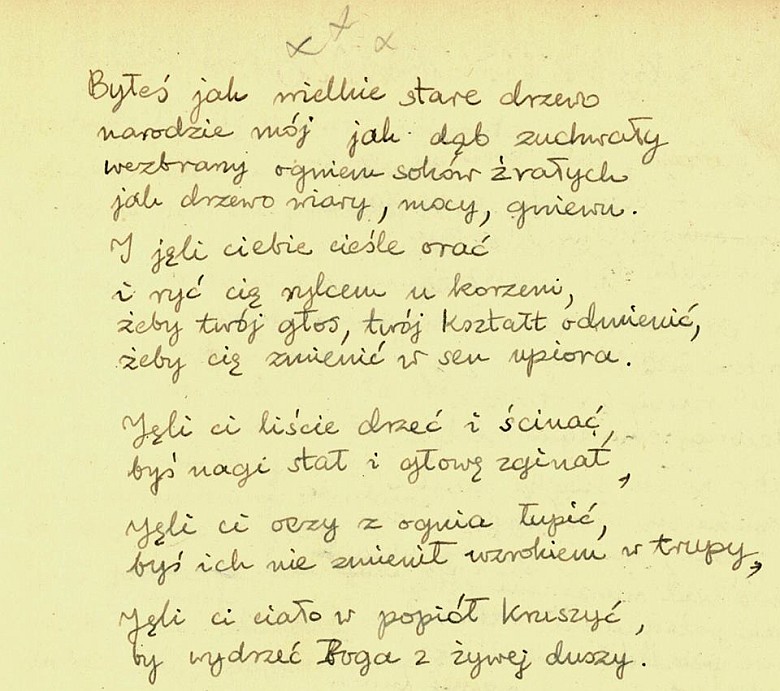 x x x
Byłeś jak wielkie stare drzewo
narodzie mój jak dąb zuchwały
wezbrany ogniem soków źrałych
jak drzewo wiary, mocy, gniewu.
I jęli ciebie cieśle orać
i ryć cię rylcem u korzeni,
żeby twój głos, twój kształt odmienić,
żeby cię zmienić w sen upiora.
Jęli ci liście drzeć i ścinać,
byś nagi stał i głowę zginał,
Jęli ci oczy z ognia łupić,
byś ich nie zmienił wzrokiem w trupy,
Jęli ci ciało w popiół kruszyć,
by wydrzeć Boga z żywej duszy.